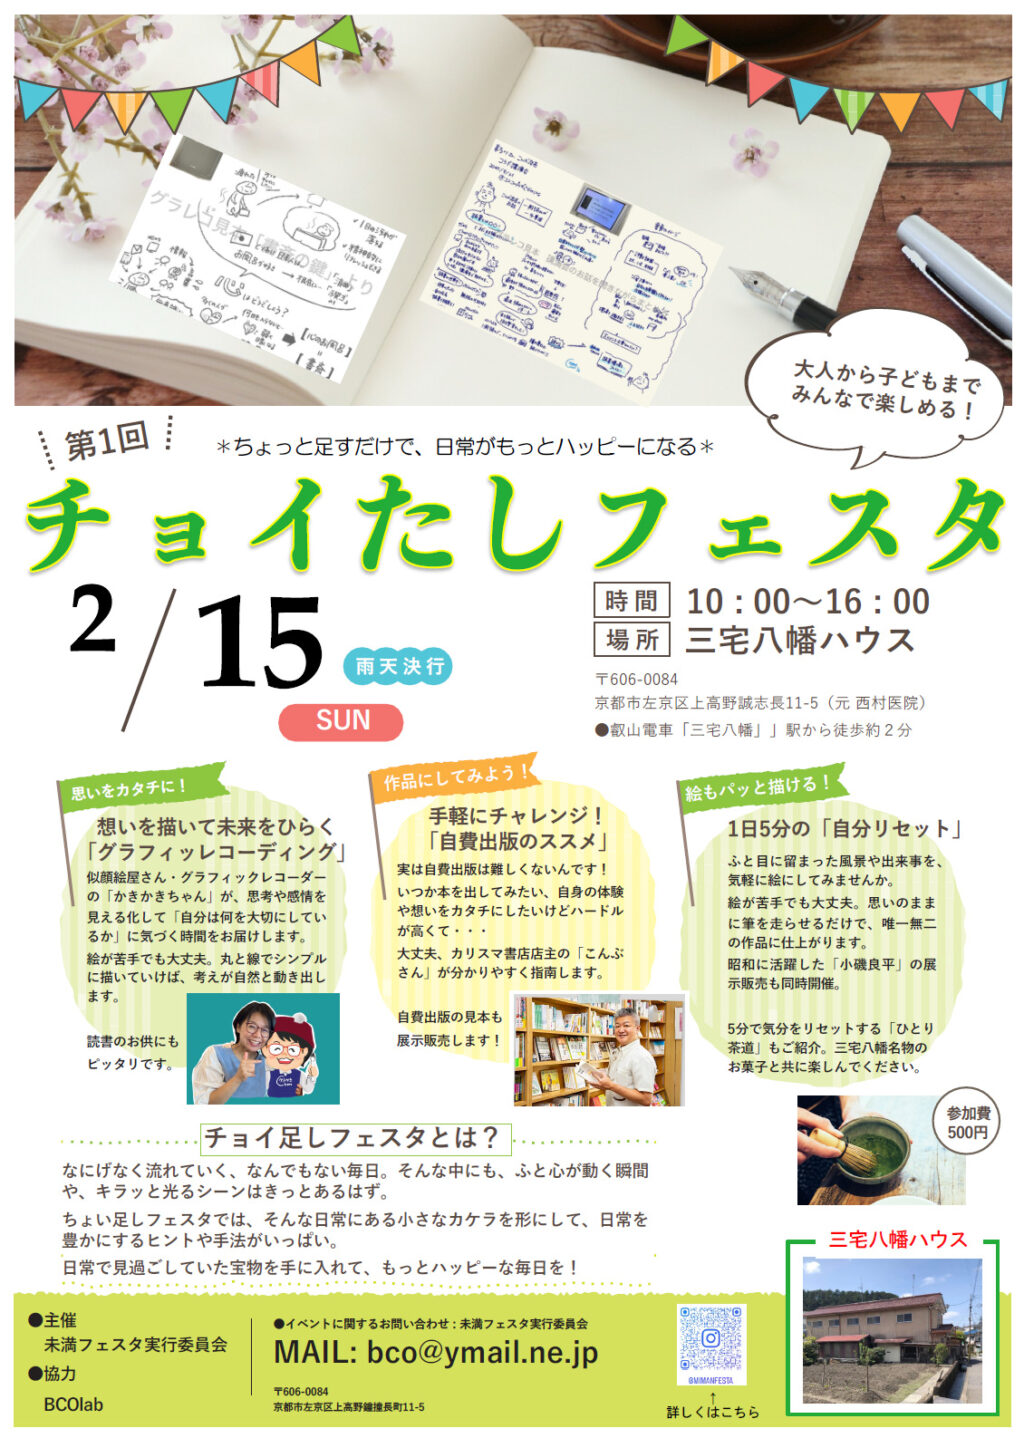 グラレコ見本「書斎の鍵」より
大人から子どもまで
みんなで楽しめる！
第1回
＊ちょっと足すだけで、日常がもっとハッピーになる＊
チョイたしフェスタ
2/15
雨天決行
SUN
時間 10：00～16：00
場所 三宅八幡ハウス
〒606-0084
京都市左京区上高野誠志長11-5（元 西村医院）
●叡山電車「三宅八幡」」駅から徒歩約２分
思いをカタチに！
想いを描いて未来をひらく
「グラフィッレコーディング」
似顔絵屋さん・グラフィックレコーダー
の「かきかきちゃん」が、思考や感情を
見える化して「自分は何を大切にしてい
るか」に気づく時間をお届けします。
絵が苦手でも大丈夫。丸と線でシンプル
に描いていけば、考えが自然と動き出し
ます。
読書のお供にも
ピッタリです。
作品にしてみよう！
手軽にチャレンジ！
「自費出版のススメ」
実は自費出版は難しくないんです！
いつか本を出してみたい、自身の体験
や想いをカタチにしたいけどハードル
が高くて・・・
大丈夫、カリスマ書店店主の「こんぶ
さん」が分かりやすく指南します。
自費出版の見本も
展示販売します！
絵もパッと描ける！
1日5分の「自分リセット」
ふと目に留まった風景や出来事を、
気軽に絵にしてみませんか。
絵が苦手でも大丈夫。思いのまま
に筆を走らせるだけで、唯一無二
の作品に仕上がります。
昭和に活躍した「小磯良平」の展
示販売も同時開催。
5分で気分をリセットする「ひとり
茶道」もご紹介。三宅八幡名物の
お菓子と共に楽しんでください。
参加費
500円
チョイ足しフェスタとは？
なにげなく流れていく、なんでもない毎日。そんな中にも、ふと心が動く瞬間
や、キラッと光るシーンはきっとあるはず。
ちょい足しフェスタでは、そんな日常にある小さなカケラを形にして、日常を
豊かにするヒントや手法がいっぱい。
日常で見過ごしていた宝物を手に入れて、もっとハッピーな毎日を！
三宅八幡ハウス
●主催
未満フェスタ実行委員会
●協力
BCOlab
●イベントに関するお問い合わせ：未満フェスタ実行委員会
MAIL: bco@ymail.ne.jp
〒606-0084
京都市左京区上高野鐘撞長町11-5
@MIMANFESTA
↑
詳しくはこちら